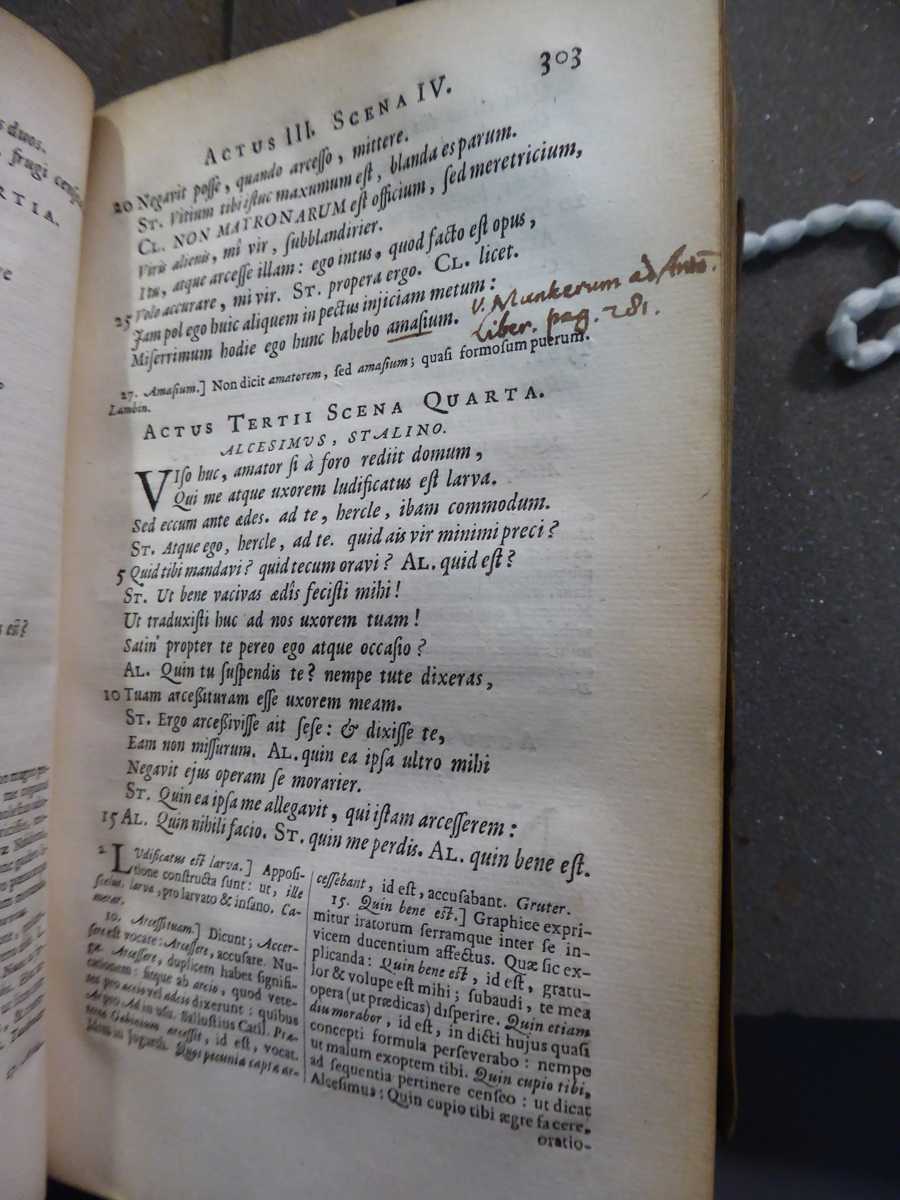 s duos.
, frugi
RTIA.
303
ACTUS III. SCENA IV.
20 Negavit posse, quando arcesso, mittere.
ST. Vitium tibi istuc maxumum est, blanda es parum.
CL. NON MATRONARUM est officium, sed meretricium,
Viris alienis, mî vir, subblandirier.
Itu, atque arcesse illam: ego intus, quod facto est opus,
25 Volo accurare, mi vir. ST. propera ergo. CL. licet.
Jam pol ego huic aliquem in pectus injiciam metum:
Miserrimum hodie ego hunc habebo amasium.
v. Munkerum ad Anto.
Liber. pag. 281.
27. Amasium.] Non dicit amatorem, sed amasium; quasi formosum puerum.
Lambin.
ACTUS TERTII SCENA QUARTA.
ALCESIMUS, STALINO.
VIso huc, amator si à foro rediit domum,
Qui me atque uxorem ludificatus est larva.
Sed eccum ante ædes. ad te, hercle, ibam commodum.
ST. Atque ego, hercle, ad te. quid ais vir minimi preci?
5 Quid tibi mandavi? quid tecum oravi? AL. quid est?
ST. Ut bene vacivas ædîs fecisti mihi!
Ut traduxisti huc ad nos uxorem tuam!
Satin' propter te pereo ego atque occasio?
AL. Quin tu suspendis te? nempe tute dixeras,
10 Tuam arcessituram esse uxorem meam.
ST. Ergo arcessivisse ait sese: & dixisse te,
Eam non missurum. AL. quin ea ipsa ultro mihi
Negavit ejus operam se morarier.
ST. Quin ea ipsa me allegavit, qui istam arcesserem:
15 AL. Quin nihili facio. ST. quin me perdis. AL. quin bene est.
2. LUdificatus est larva.] Apposi-
tione constructa sunt: ut, ille
scelus. larva, pro larvato & insano. Ca-
merar.
10. Arcessituam.] Dicunt; Accer-
sere est vocare: Arcessere, accusare. Nu-
gæ. Arcessere, duplicem habet signifi-
cationem: sicque ab arcio, quod vete-
res pro accio vel adeo dixerunt: quibus
Ar pro Ad in usu. Sallustius Catil. Præ-
terea Gabinium arcessit, id est, vocat.
Idem in Jugurth. Quos pecunia capta ar-
cessebant, id est, accusabant. Gruter.
15. Quin bene est.] Graphice expri-
mitur iratorum serramque inter se in-
vicem ducentium affectus. Quæ sic ex-
plicanda: Quin bene est, id est, gratu-
lor & volupe est mihi; subaudi, te mea
opera (ut prædicas) disperire. Quin etiam
diu morabor, id est, in dicti hujus quasi
concepti formula perseverabo: nempe
ut malum exoptem tibi. Quin cupio tibi,
ad sequentia pertinere censeo: ut dicat
Alcesimus: Quin cupio tibi ægre facere,
oratio-